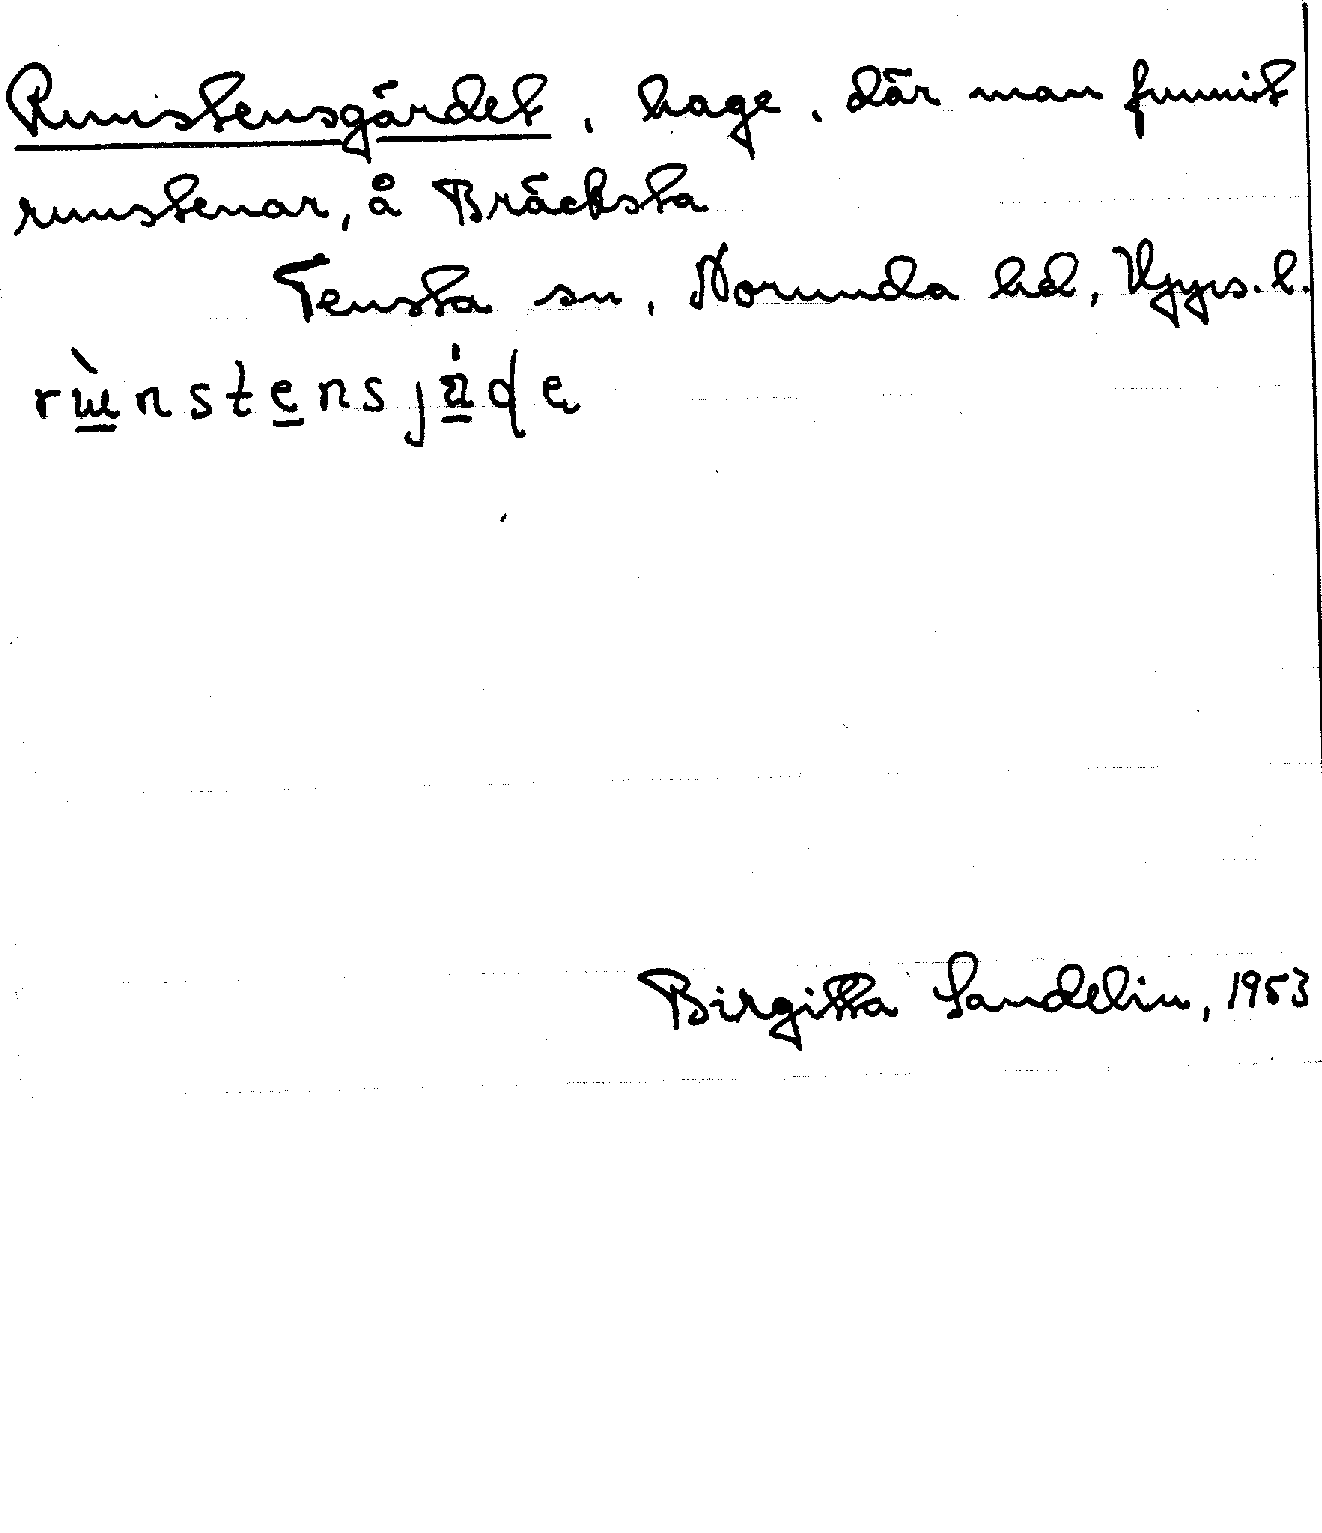 Runstensgärdet, hage, där man funnit
runstenar, å Bräcksta
Tensta sn, Norunda hd, Upps. l.
Birgitta Sandelin, 1953